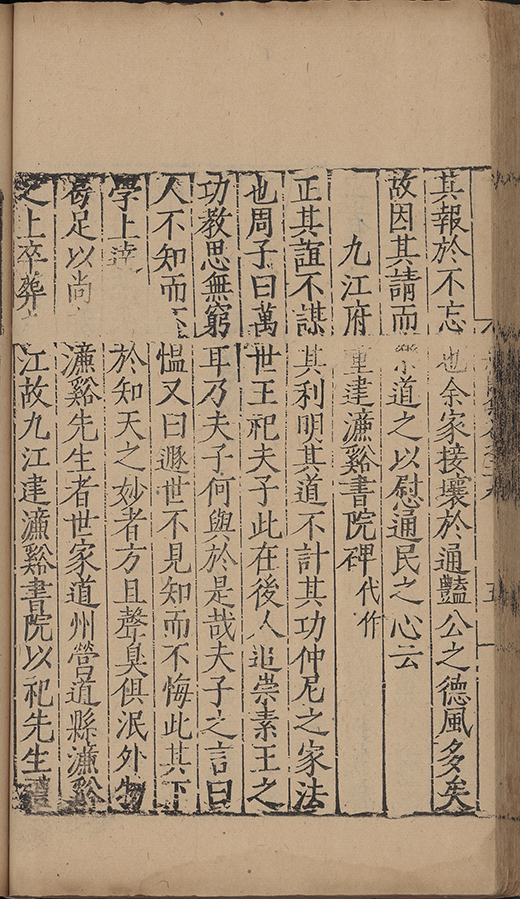 其報於不忘也余家接壤於通豔公之德風多矣
故因其請而樂道之以慰通民之心云
九江府重建濂谿書院碑代作
正其誼不謀其利明其道不計其功仲尼之家法
也周子曰萬世王祀夫子此在後人追崇素王之
功教思無窮耳乃夫子何與於是哉夫子之言曰
人不知而不慍又曰遯世不見知而不悔此其下
學上達於知天之妙者方且聲臭俱泯外物
足以尚濂谿先生者世家道州營道縣濂谿
之上卒葬江故九江建濂谿書院以祀先生